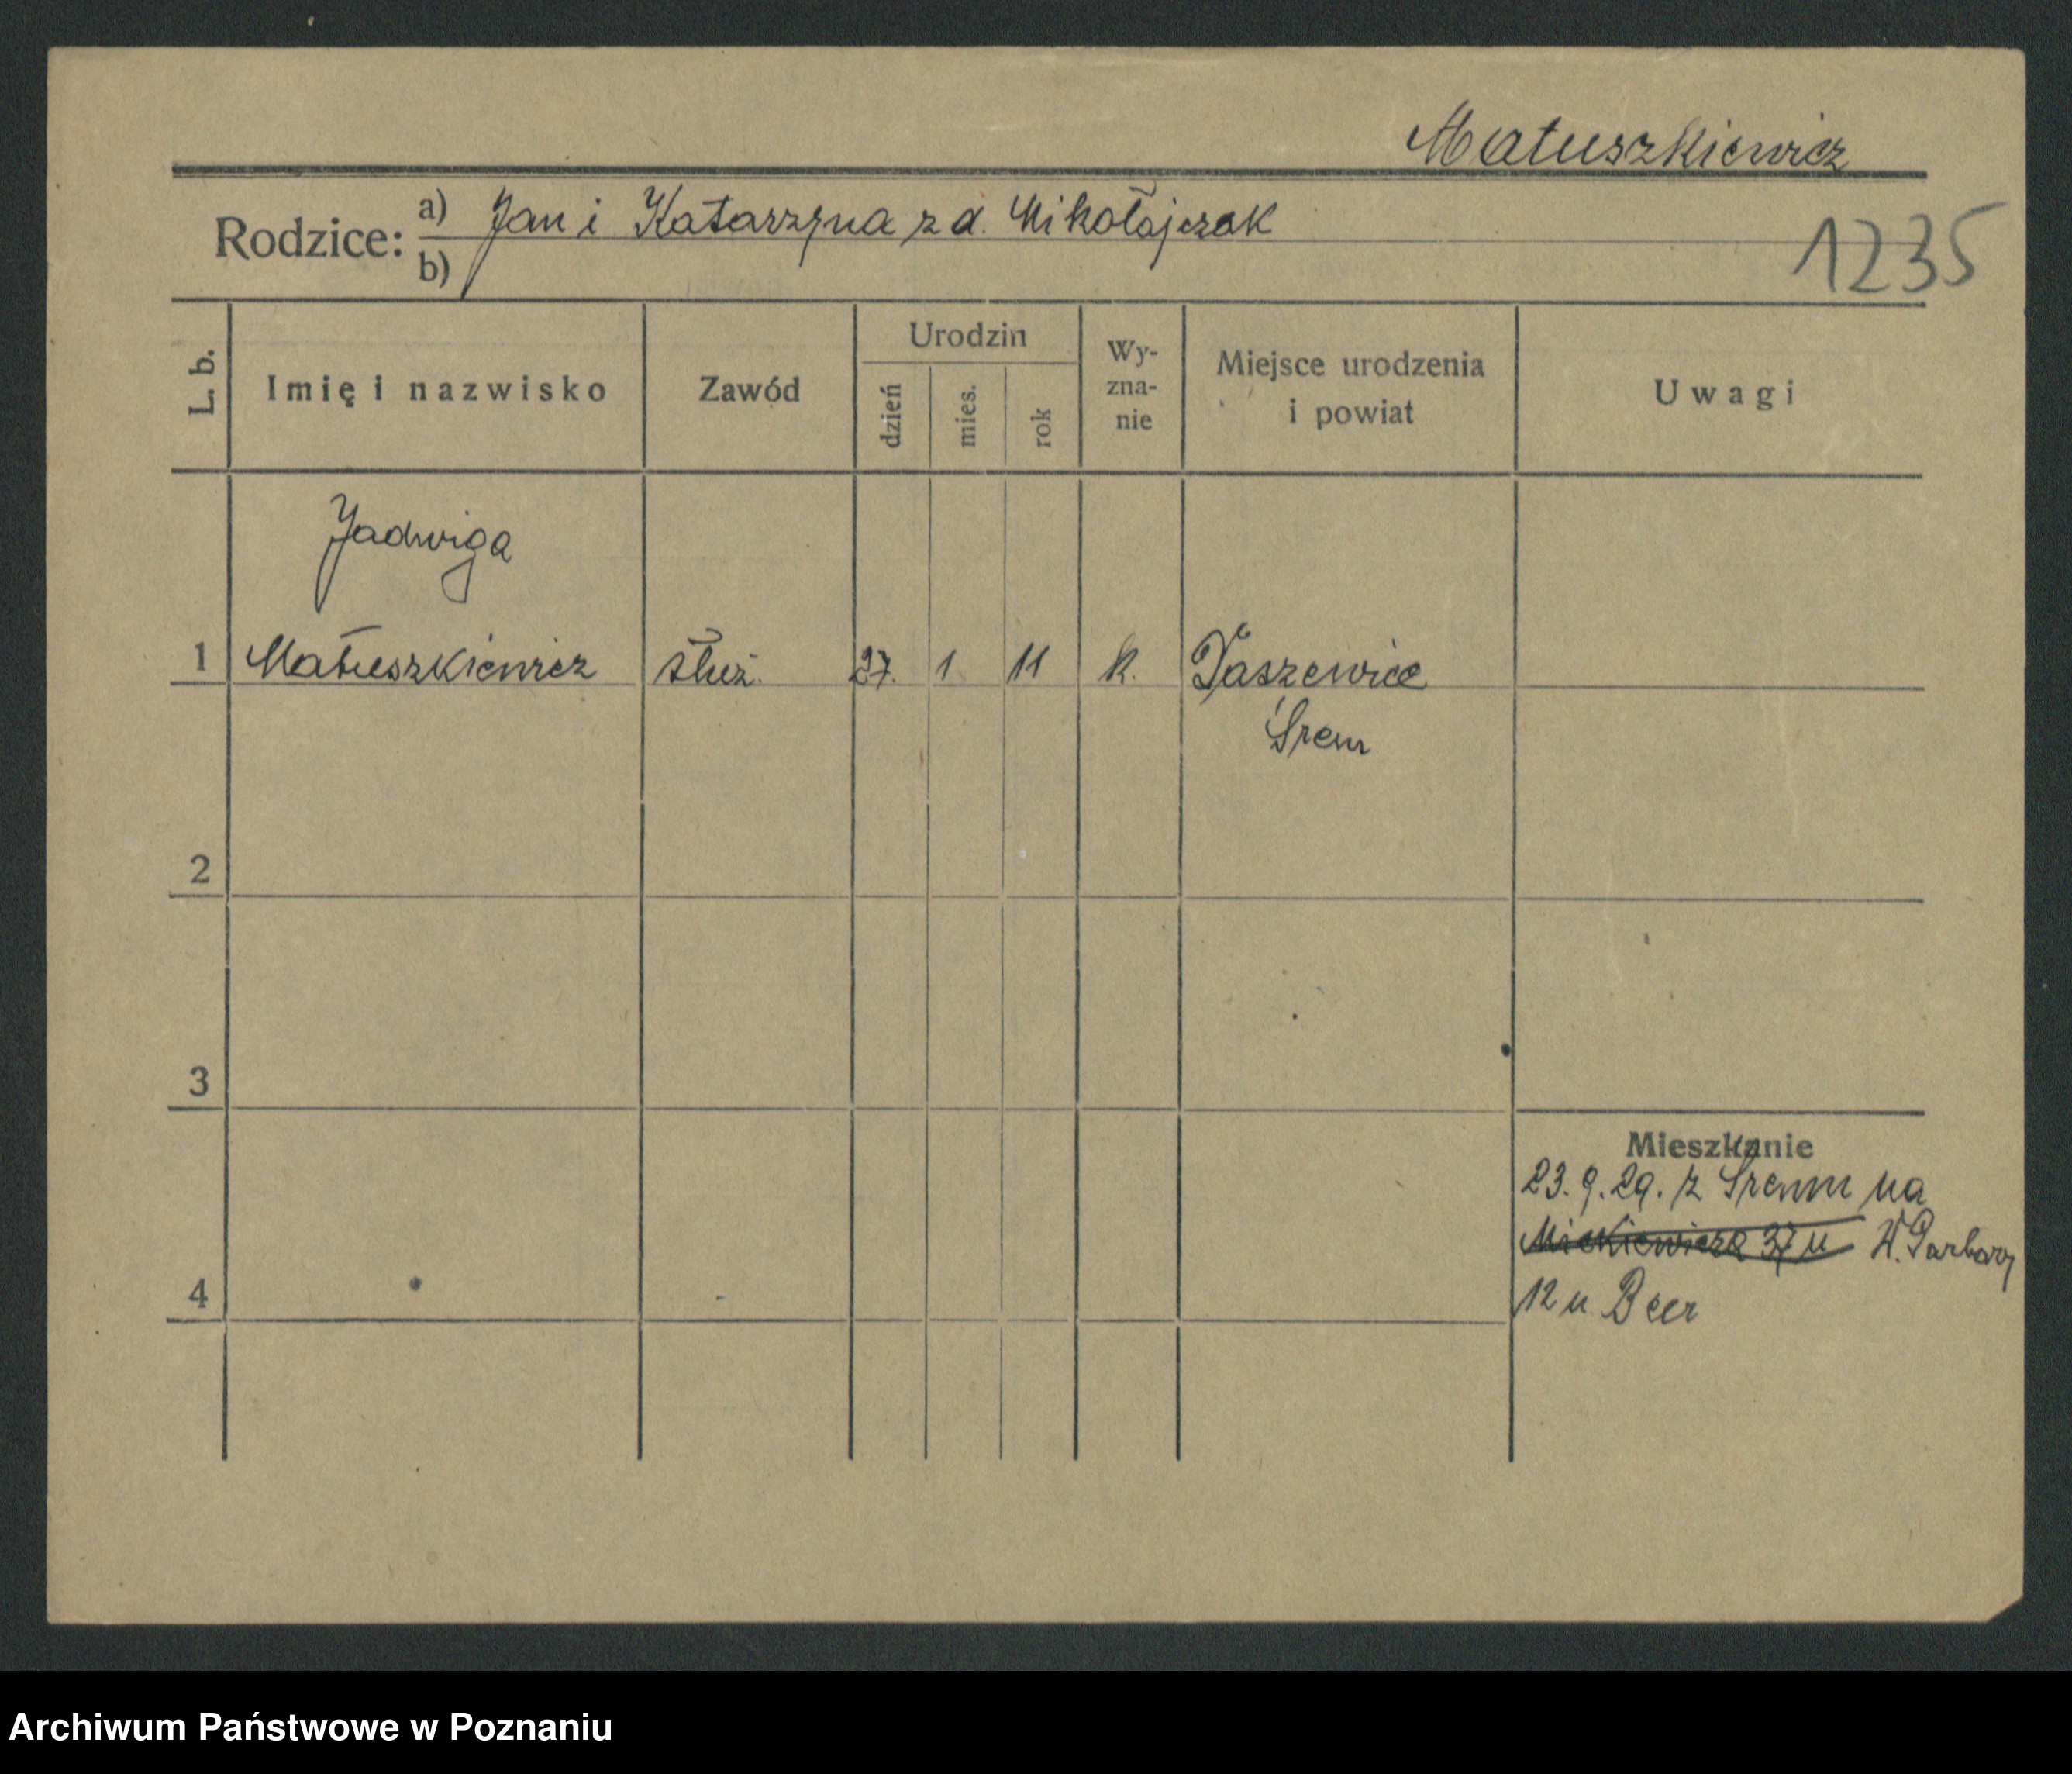 Matuszkiewicz
Rodzice: a) Jan i Katarzyna z d. Mikołajczak
b)
1235
L. b. Imię i nazwisko Zawód Urodzin dzień mies. rok Wy-zna-nie Miejsce urodzenia i powiat Uwagi
Jadwiga
1 Matuszkiewicz służ. 27. 1 11 k. Daszewice
Śrem
2
3
Mieszkanie
23. 9. 29. z Śremu na
Mickiewicza 37 u W. Garbary
4
12 u Beer
Archiwum Państwowe w Poznaniu